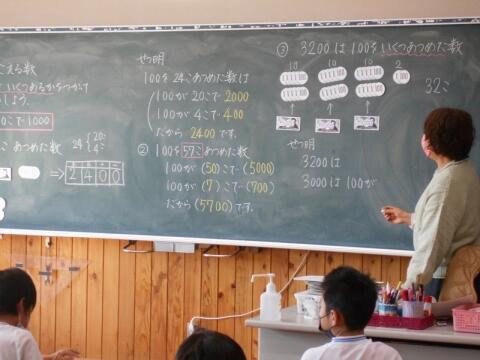 こえる数
といくつあるかをつかって
しょう。
0こで1000
こ あつめた数
24 20こ
4こ
⇒ 2400
せつ明
100を24こあつめた数は
100が20こで2000
100が4こで400
だから 2400です。
② 100を57こあつめた数
100が(50)こで(5000)
100が(7)こで(700)
だから(5700)です。
③ 3200は100をいくつあつめた数
10 10 10 2
32こ
せつ明
3200は
3000は100が